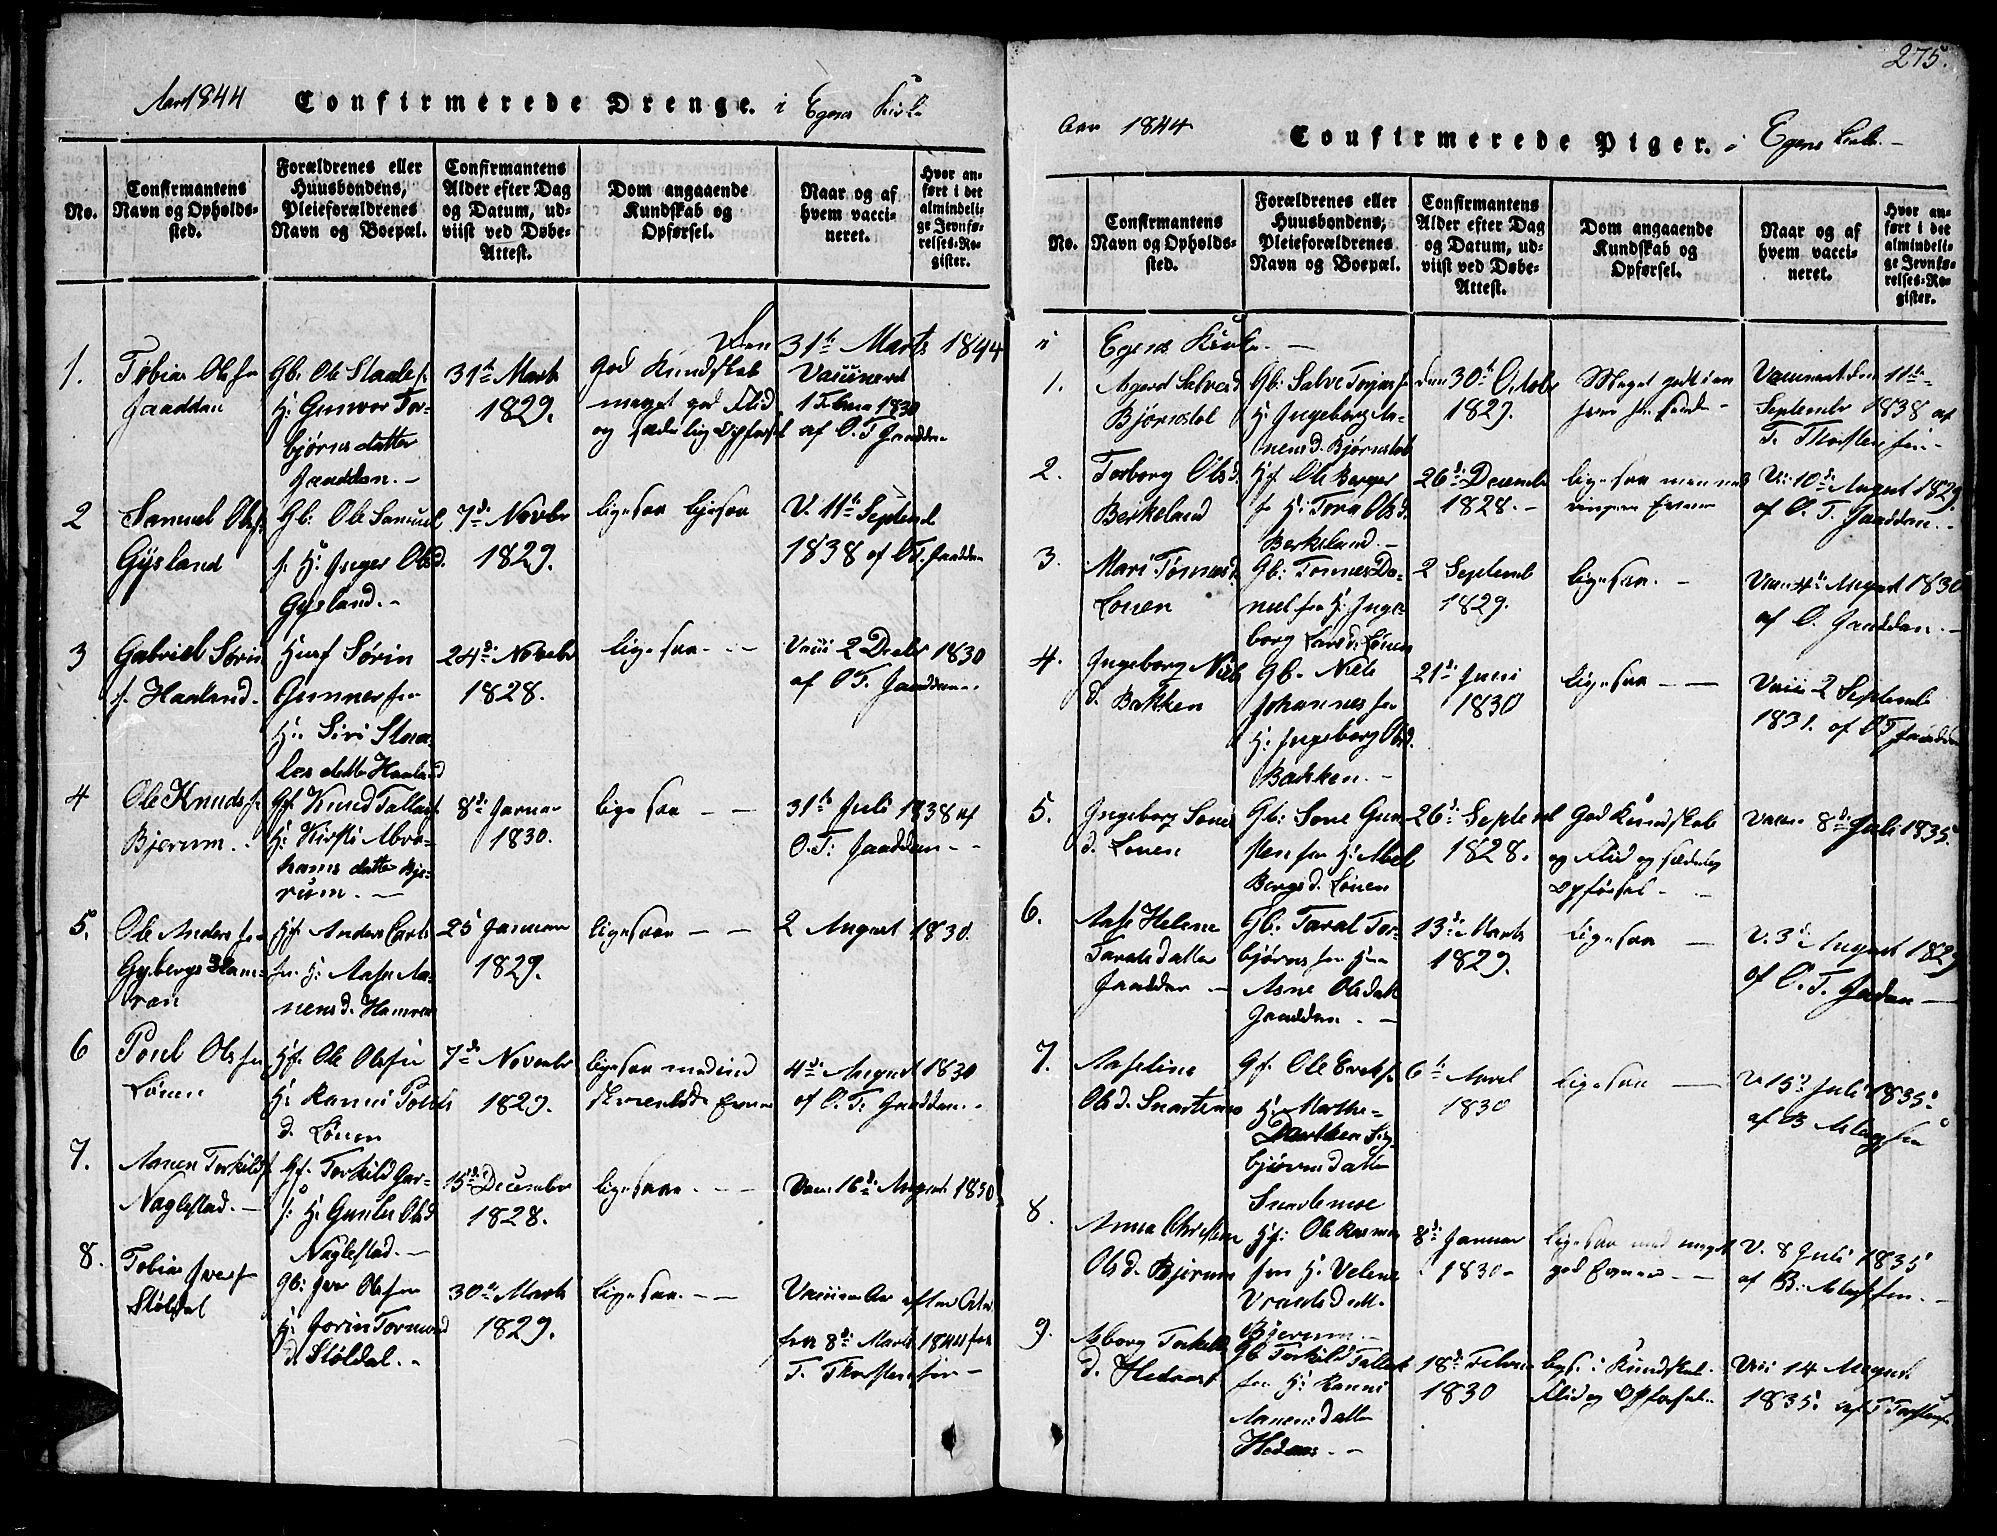 275.
Aar 1844 Confirmerede Drenge. i Egens Kirke
No.
Confirmantens Navn og Opholds-sted.
Forældrenes eller Huusbondens, Pleieforældrenes Navn og Boepæl.
Confirmantens Alder efter Dag og Datum, ud-viist ved Døbe-Attest.
Dom angaaende Kundskab og Opførsel.
Naar og af hvem vacci-neret.
Hvor an-ført i det almindeli-ge Jevnfø-relses-Re-gister.
Den 31te Marts 1844
1. Tobias Olsen
Jaaddan
Gb. Ole Staales.
H: Gunvor Tor-
bjørns datter
Jaaddan. -
31te Marts
1829.
god Kundskab
meget god Flid
og sædelig Opførsel
Vaccineret
1 Februar 1830
af O. T. Jaaddan
2 Samuel Ols.
Gysland
Gb: Ole Samuel
s. H: Inger Olsd.
Gysland. -
7de Novbr
1829.
ligesaa ligesaa
V. 11te Septemb
1838 af O.T. Jaaddan
3 Gabriel Sørin
s. Haaland.
Huusf Sørin
Gunnersen
H: Siri Staa-
les datter Haaland
24de Novebr
1828.
ligesaa - -
Vacci 2 Decbr 1830
af O T. Jaaddan
4 Ole Knuds.
Bjerum.
Gf. Knud Tallaks
H: Kirsti Abra-
hams datter Bje-
rum. -
8de Januar
1830.
ligesaa - -
31te Juli 1838 af
O. T: Jaaddan - -
5. Ole Andersen
Gybergs Ham-
ran
Hf. Anders Carls
sen H: Aase Aa-
nensd. Hamran
25 Januar
1829.
ligesaa - -
2 August 1830.
6 Poul Olsen
Lønen
Hf. Ole Olsen
H: Ranni Pouls
d. Lønen
7de Novembr
1829.
ligesaa med ind
skrænkede Evner
4de August 1830
af O. T: Jaaddan. -
7. Aanen Torkilds.
Naglestad. -
Gf. Torkild Gar-
s. H: Gunild Olsd
Naglestad. -
15de December
1828.
ligesaa. - -
Vac. 16de August 1830
8. Tobias Ivers.
Støldal
Gb: Iver Olsen
H: Jorin Tormod
d. Støldal. -
30te Marts
1829.
ligesaa. - -
Vaccineret efter Attest
fra 8de Marts 1844 fra
T. Thorstensen -
Aar 1844 Confirmerede Piger. i Egens Kirke. -
No.
Confirmantens Navn og Opholds-sted.
Forældrenes eller Huusbondens, Pleieforældrenes Navn og Boepæl.
Confirmantens Alder efter Dag og Datum, ud-viist ved Døbe-Attest.
Dom angaaende Kundskab og Opførsel.
Naar og af hvem vacci-neret.
Hvor an-ført i det almindeli-ge Jevnfø-relses-Re-gister.
i Egens Kirke. -
1. Agnet Salvesd
Bjørnstøl
Gb: Salve Torjus
H. Ingeborg Aa-
nensd. Bjørnstøl
den 30te Octobr
1829.
Meget godt
Vaccineret den 11te
September 1838 af
T. Thorsten
sen. -
2. Torborg Olsd.
Berkeland
Hf. Ole Berger
s. H: Tora Olsd.
Berkeland. -
26de Decemb
1828. -
ligesaa men med
ringere Evner
V: 10de August 1829.
af O. T. Jaaddan. -
3. Mari Tønnesd.
Lonen
Gb: Tønnes Da-
niel sen H: Inge-
borg Larsd. Lønen
2 Septemb
1829.
ligesaa. -
Vac 4de August 1830
af O. Jaaddan. -
4. Ingeborg Niels
d. Bakken
Gb. Niels
Johannes sen
H: Ingeborg Olsd.
Bakken. -
21de Juni
1830
ligesaa - -
Vacci 2 Septemb
1831. af O T Jaaddan
5. Ingeborg Sones
d. Lonen
Gb: Sone Gun
sten sen H: Abel
Bergsd. Lønen
26de Septemb
1828.
God Kundskab
og Flid og sædelig
Opførsel. -
Vacc 8de Juli 1835.
6. Aase Helene
Taralsdatter
Jaaddan -
Gb. Taral Tor-
bjørns sen H
Asne Olsdatt
Jaaddan. -
13de Marts
1829.
ligesaa -
V. 3de August 1829
af O. T. Jaadan -
7. Aaseline
Olsd. Snartemo
Gf. Ole Ereks.
H: Marthe-
Dorthea Sig-
bjørnsdatter
Snartemoe
6te April
1830
ligesaa -
V. 15de Juli 1835.
af B
8. Anna Christine
Olsd. Bjerum
Hf: Ole Rasmus
sen H. Velene
Bjerum. -
8de Januar
1830 -
ligesaa med meget
god Evner - -
V. 8 Juli 1835
af B.
9. Asborg Torkilds
d. Hedaas
Gb Torkild Tallak
sen H: Ranni
Aanensdatter
Hedaas. - -
18de Febru
1830
ligs. i Kundskab.
Flid og Opførsel. -
Vacci 14 August
1835. af T Torstens